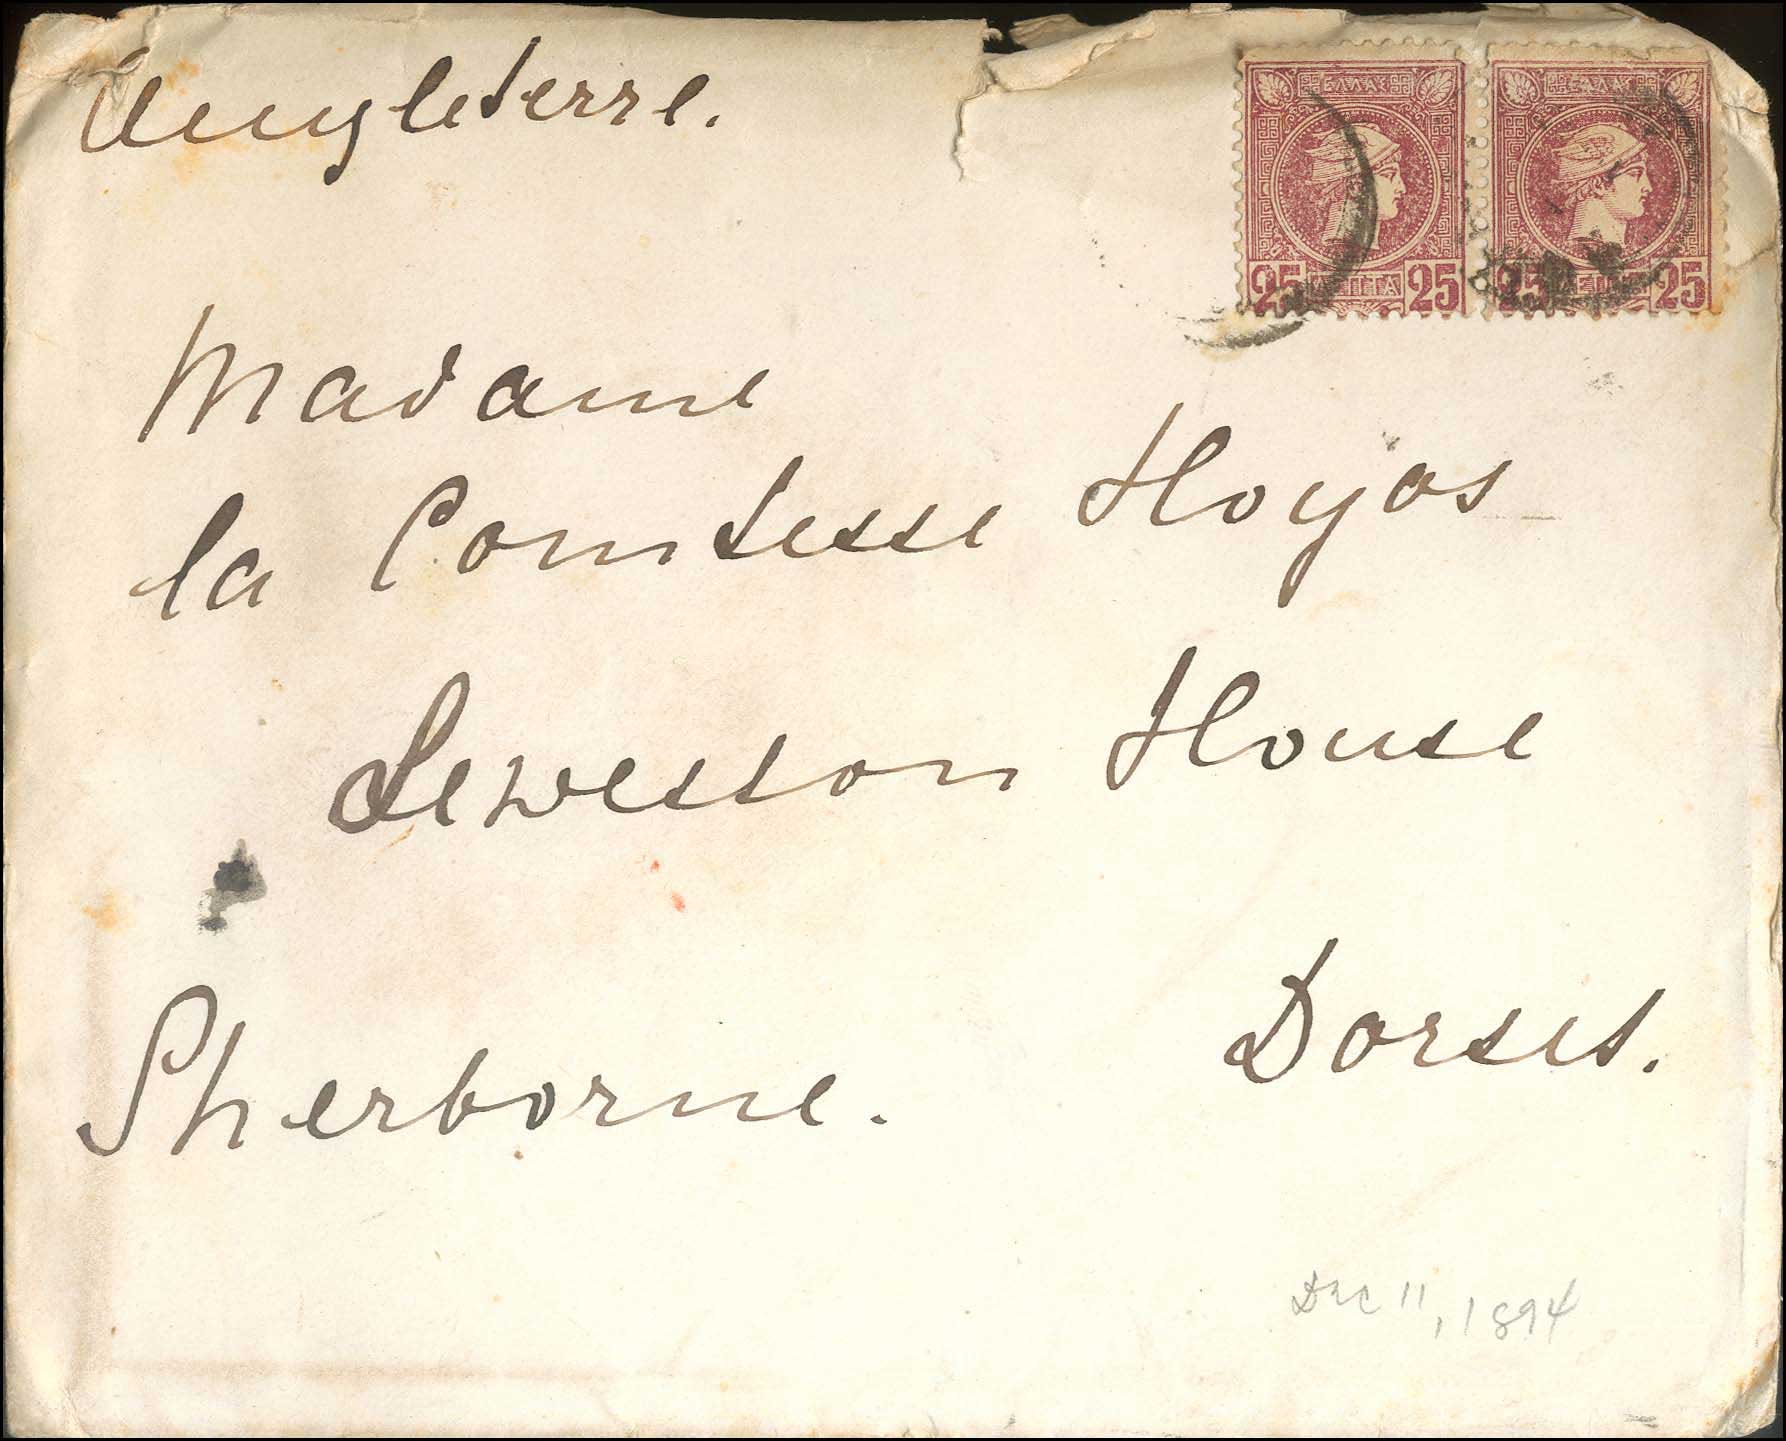 Angleterre.
ΕΛΛΑΣ ΕΛΛΑΣ
25 ΛΕΠΤΑ 25 25 ΛΕΠΤΑ 25
Madame
la Comtesse Hoyos
Leweston House
Sherborne. Dorset.
Dec 11, 1894